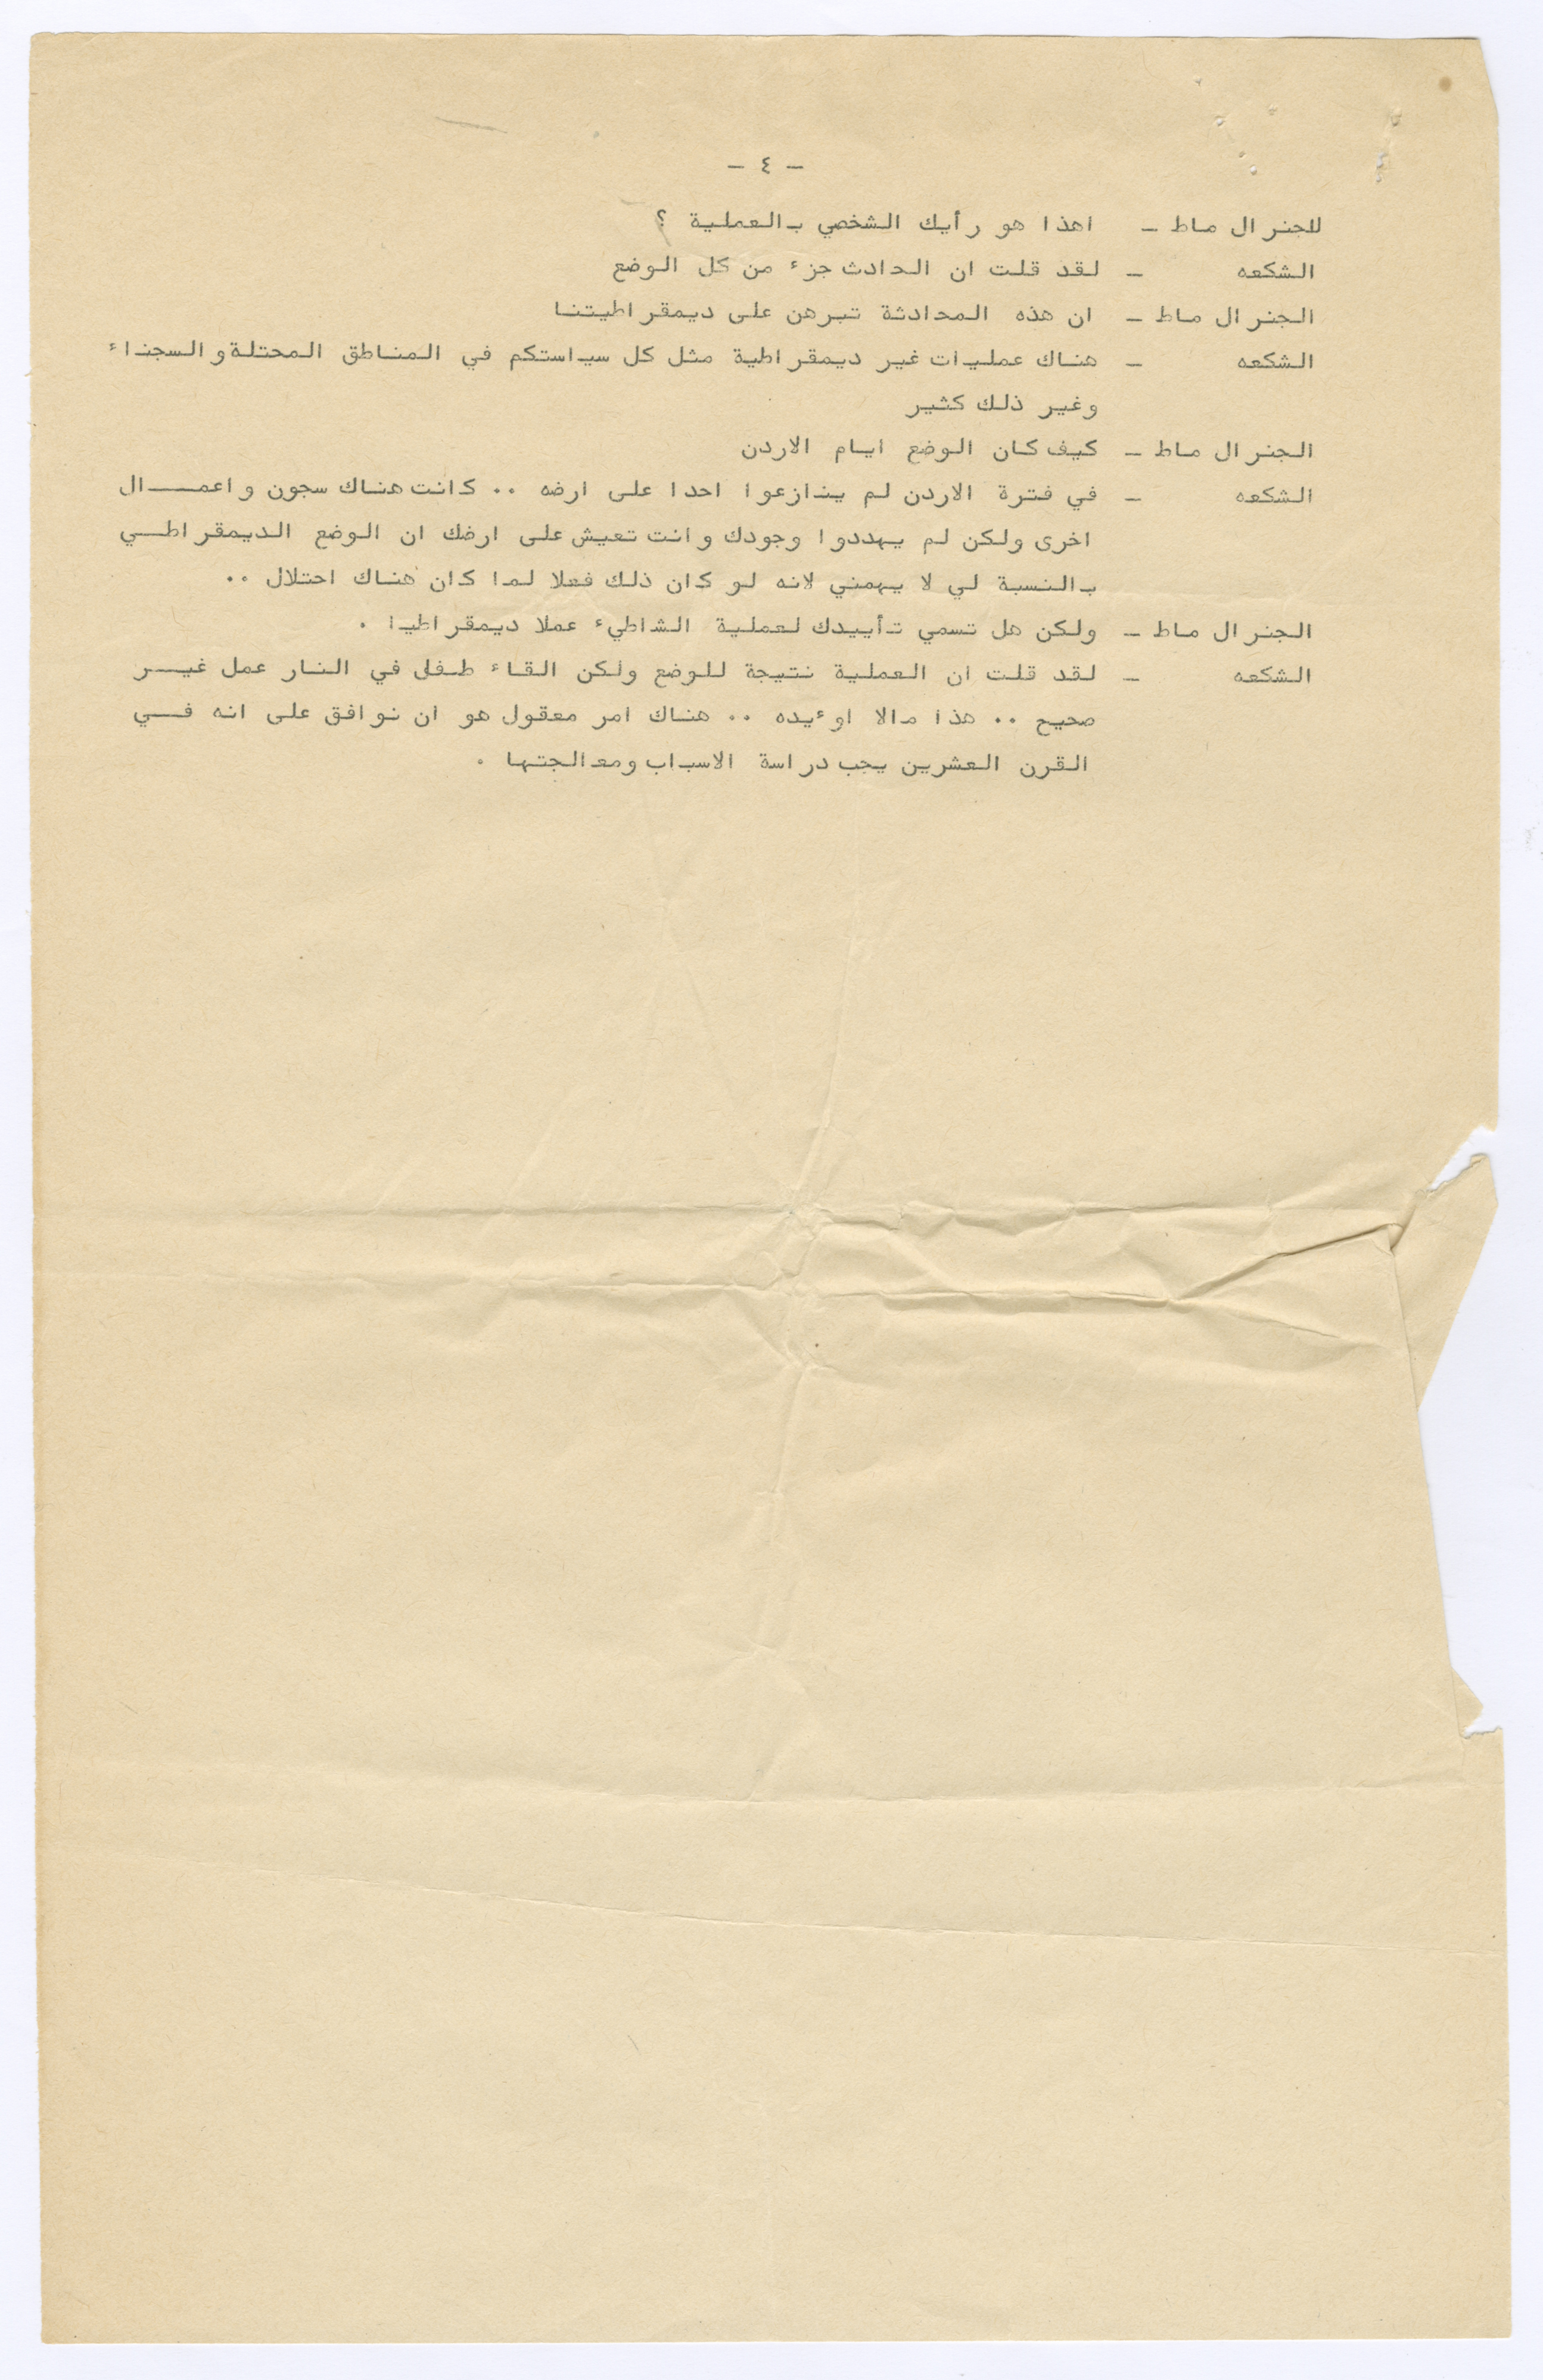 - ٤ -
للجنرال ماط - اهذا هو رأيك الشخصي بالعملية ؟
الشكعه - لقد قلت ان الحادث جزء من كل الوضع
الجنرال ماط - ان هذه المحادثة تبرهن على ديمقراطيتنا
الشكعه - هناك عمليات غير ديمقراطية مثل كل سياستكم في المناطق المحتلة والسجناء
وغير ذلك كثير
الجنرال ماط - كيف كان الوضع ايام الاردن
الشكعه - في فترة الاردن لم ينازعوا احدا على ارضه .. كانت هناك سجون واعمــال
اخرى ولكن لم يهددوا وجودك وانت تعيش على ارضك ان الوضع الديمقراطــي
بالنسبة لي لا يهمني لانه لو كان ذلك فعلا لما كان هناك احتلال ..
الجنرال ماط - ولكن هل تسمي تأييدك لعملية الشاطيء عملا ديمقراطيا .
الشكعه - لقد قلت ان العملية نتيجة للوضع ولكن القاء طفل في النار عمل غيــر
صحيح .. هذا مالا اوءيده .. هناك امر معقول هو ان نوافق على انه فــي
القرن العشرين يجب دراسة الاسباب ومعالجتها .